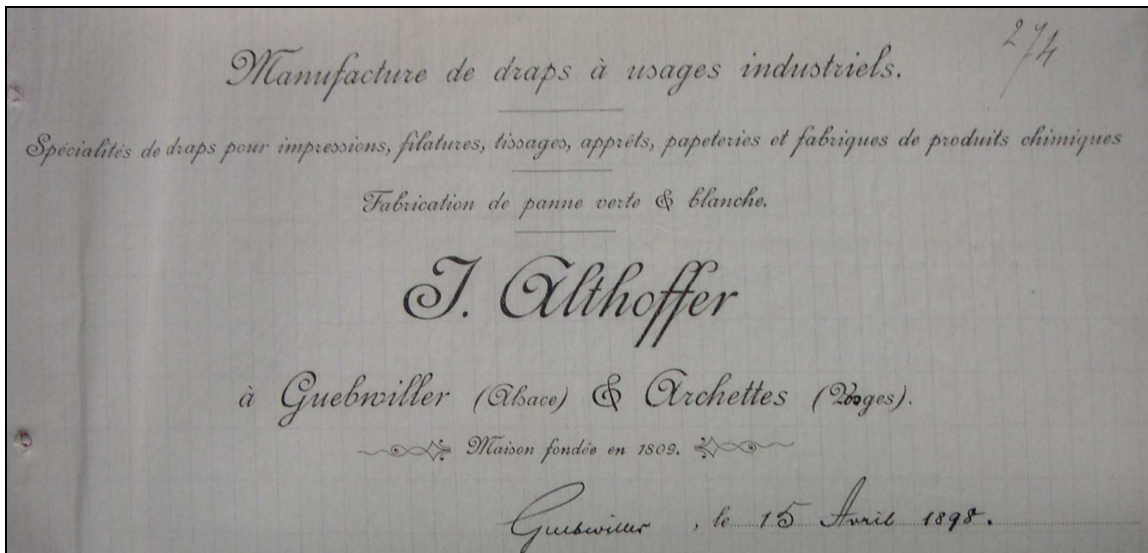 274
Manufacture de draps à usages industriels.
Spécialités de draps pour impressions, filatures, tissages, apprêts, papeteries et fabriques de produits chimiques
Fabrication de panne verte & blanche.
J. Althoffer
à Guebwiller (Alsace) & Archettes (Vosges).
Maison fondée en 1809.
Guebwiller, le 15 Avril 1898.